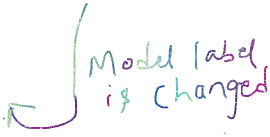 Model label
is changed